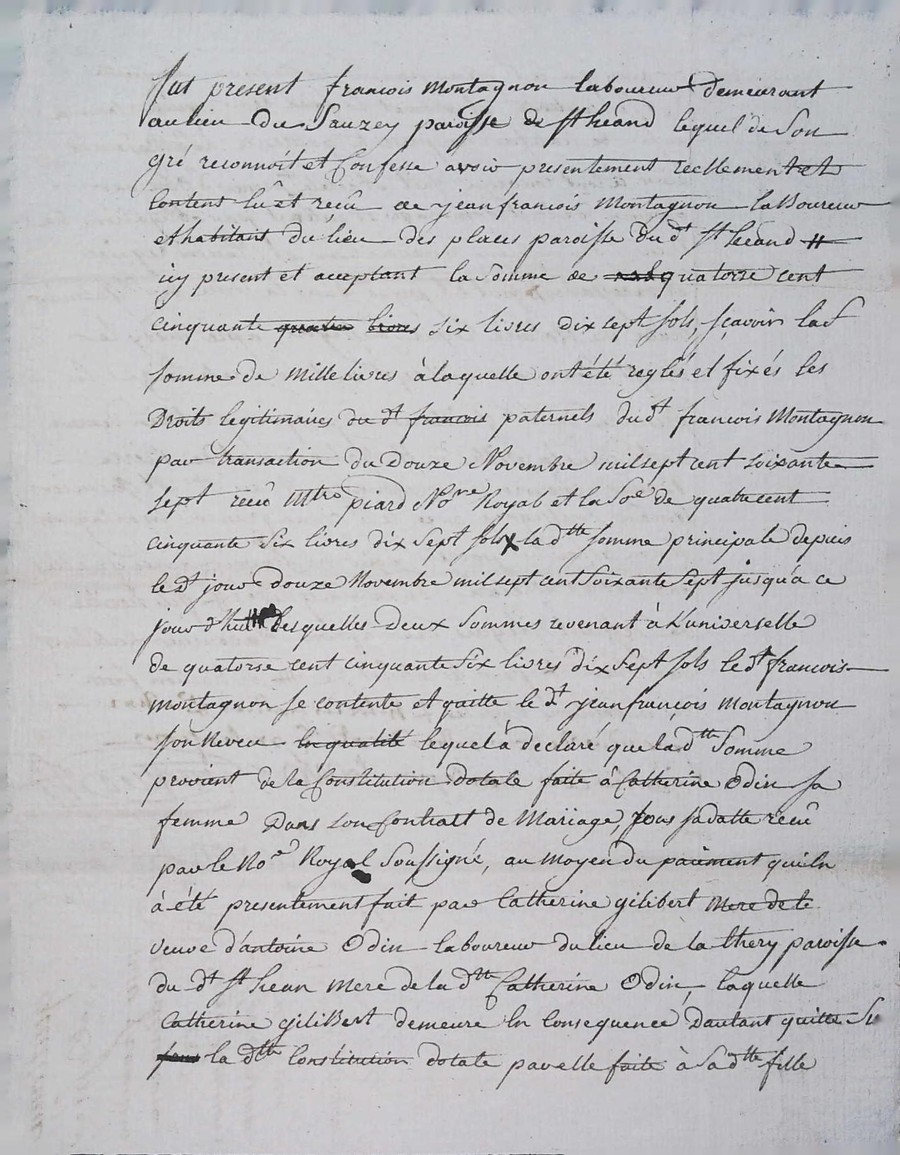 fut present francois Montagnon laboureur demeurant
au lieu du Sauzey paroisse de st heand lequel de son
gré reconnoit et Confesse avoir presentement reellement et
Content eû et reçu de jean francois Montagnon laboureur
et habitant du lieu des places paroisse du dt st heand
icy present et acceptant la somme de quatorze cent
cinquante quatre livres six livres dix sept sols, sçavoir la
somme de Mille livres à laquelle ont été reglés et fixés les
Droits legitimaires du dt francois paternels du dt francois Montagnon
par transaction du Douze Novembre mil sept cent soixante
sept recû Mtre piard Nore Royal et la Soe de quatre cent
cinquante six livres dix sept sols x la dtte somme principale depuis
le dt jour douze Novembre mil sept cent soixante sept jusqu'a ce
jour d'hui lesquelles Deux Sommes revenant à l'universelle
de quatorse cent cinquante six livres dix sept sols le dt francois
montagnon se contente et quitte le dt jean françois Montagnon
son Neveu en qualité lequel à declaré que la dtte Somme
provient de la Constitution dotale faite à Catherine Odin sa
femme Dans son Contratt de Mariage, sous sa datte recû
par le Noe Royal Soussigné, au moyen du paiment qui ln
à été presentement fait par Catherine gilibert Mere de le
veuve d'antoine Odin laboureur du lieu de la thery paroisse
du dt st hean mere de la dtte Catherine Odin, laquelle
Catherine giliBert demeure en Consequence Dautant quitte Su
la dtte Constitution dotale par elle faite à Sa dtte fille